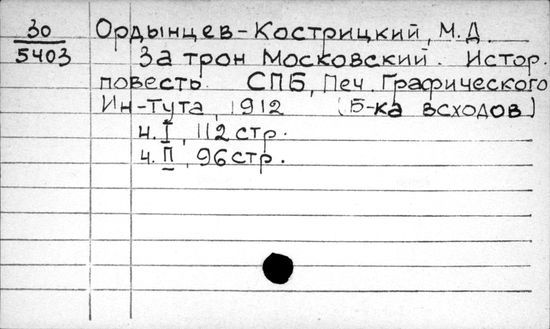 30 Ордынцев-Кострицкий, М.Д.
5403 За трон Московский. Истор.
повесть. СПБ, Печ. Графического
Ин-Тута, 1912 (Б-ка всходов)
ч. I, 112 стр.
ч. II, 96 стр.